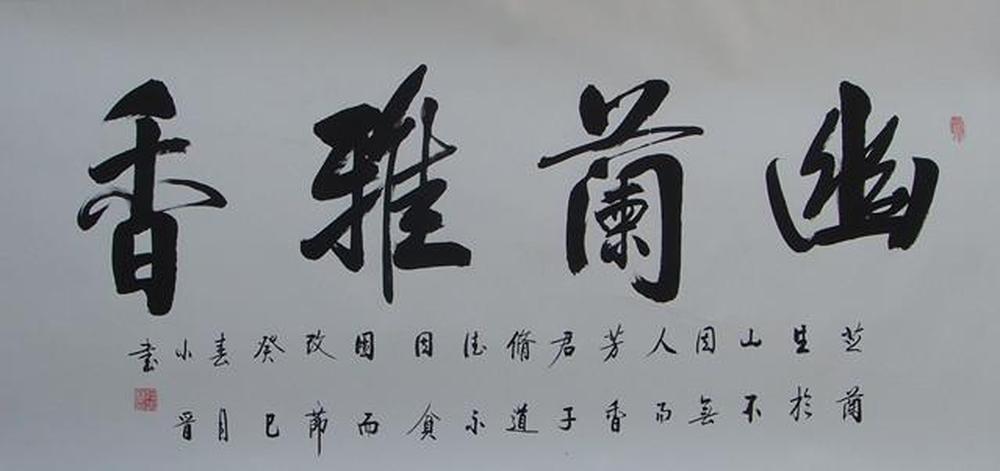 幽蘭雅香
芝蘭
生於
山不
因無
人而
芳香
君子
脩道
德不
因貧
困而
改節
癸巳
春月
小晋
书